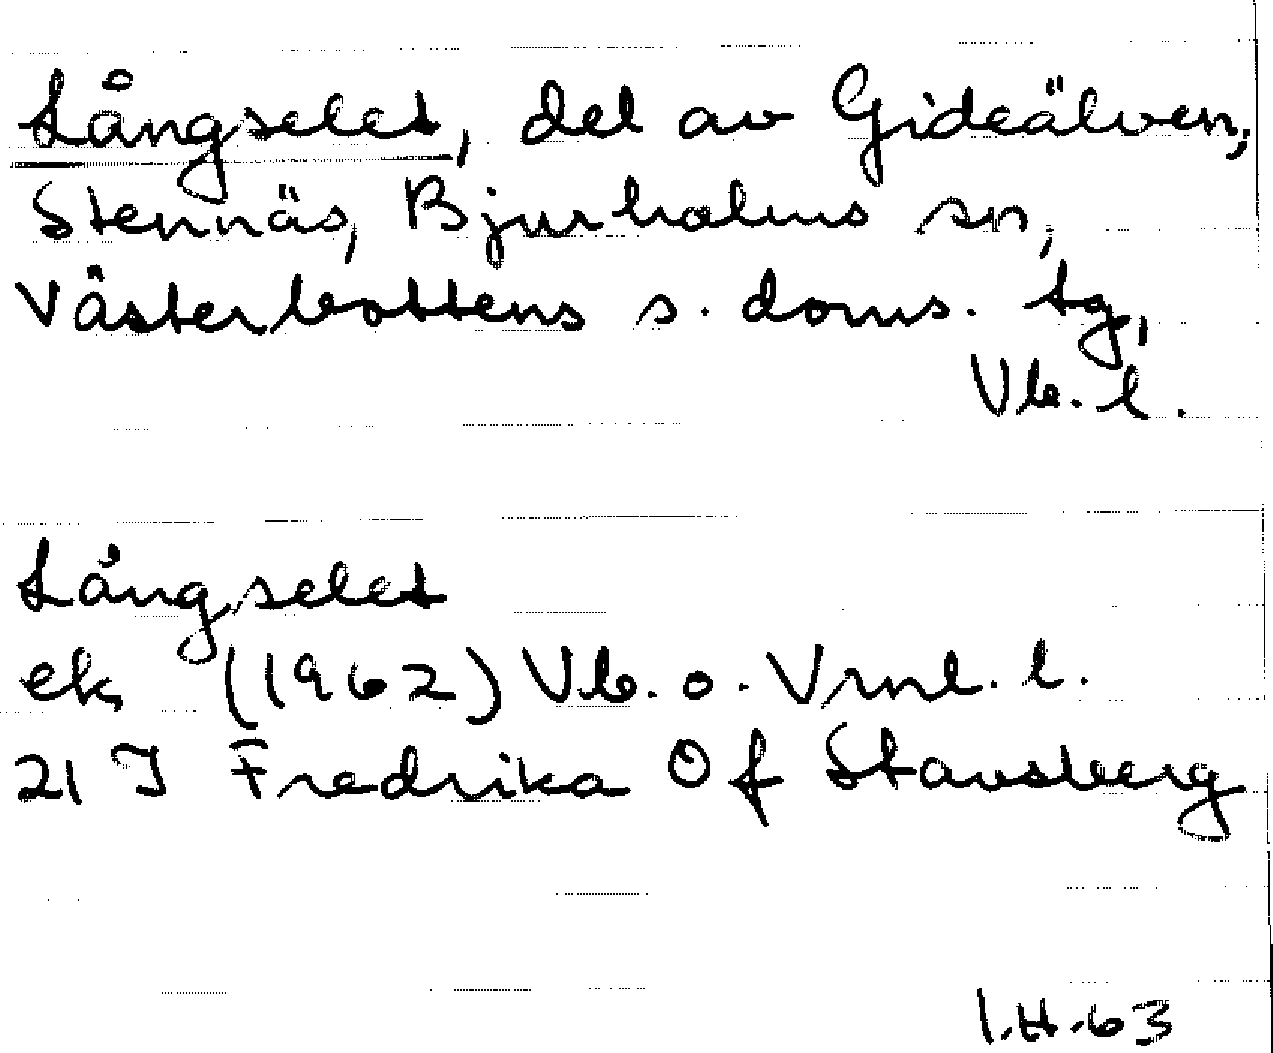 Långselet, del av Gideälven,
Stennäs, Bjurholms sn,
Västerbottens s. doms. tg,
Vb. l.
Långselet
ek (1962) Vb. o. Vrnl. l.
21 I Fredrika Of Stavsberg
I.H.63